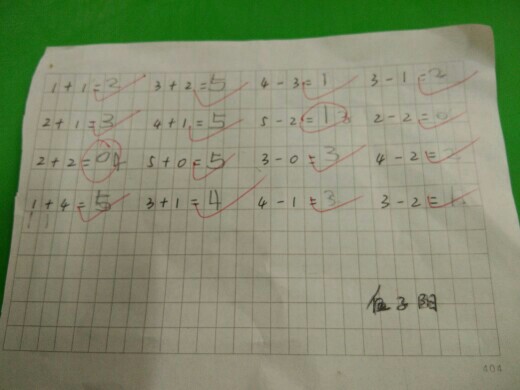 1+1=2 3+2=5 4-3=1 3-1=2
2+1=3 4+1=5 5-2=13 2-2=0
2+2=04 5+0=5 3-0=3 4-2=2
1+4=5 3+1=4 4-1=3 3-2=1
子阳
404